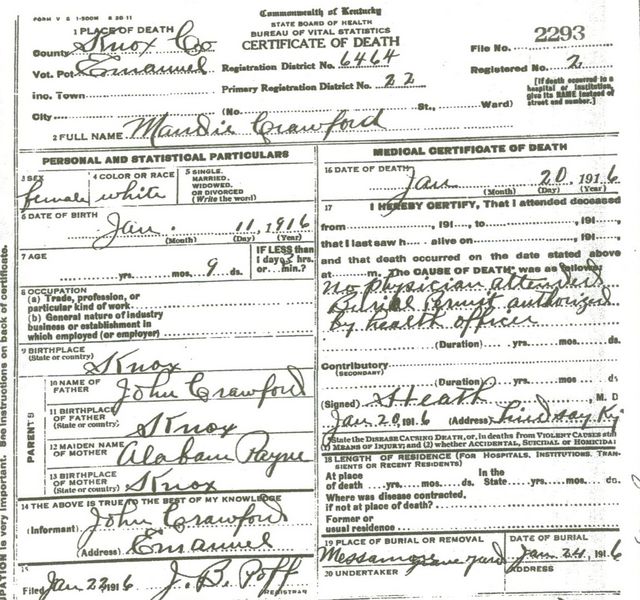 FORM V S 1-500M 8 26 11
Commonwealth of Kentucky
STATE BOARD OF HEALTH
BUREAU OF VITAL STATISTICS
CERTIFICATE OF DEATH
1 PLACE OF DEATH
County Knox Co
Vot. Pct Emanuel
Inc. Town
City
Registration District No. 6464
Primary Registration District No. 22
(No. St., Ward)
File No. 2293
Registered No. 2
[If death occurred in a
hospital or institution,
give its NAME instead of
street and number.]
2 FULL NAME Maudie Crawford
PERSONAL AND STATISTICAL PARTICULARS
3 SEX
female
4 COLOR OR RACE
white
5 SINGLE,
MARRIED,
WIDOWED,
OR DIVORCED
(Write the word)
6 DATE OF BIRTH
Jan. 11, 1916
(Month) (Day) (Year)
7 AGE
yrs. mos. 9 ds.
IF LESS than
1 day hrs.
or min.?
8 OCCUPATION
(a) Trade, profession, or
particular kind of work
(b) General nature of industry
business or establishment in
which employed (or employer)
9 BIRTHPLACE
(State or country) Knox
PARENTS
10 NAME OF
FATHER John Crawford
11 BIRTHPLACE
OF FATHER
(State or country) Knox
12 MAIDEN NAME
OF MOTHER Alabam Payne
13 BIRTHPLACE
OF MOTHER
(State or country) Knox
14 THE ABOVE IS TRUE TO THE BEST OF MY KNOWLEDGE
(Informant) John Crawford
(Address) Emanuel
15
Filed Jan 22 1916 J. B. Poff
REGISTRAR
MEDICAL CERTIFICATE OF DEATH
16 DATE OF DEATH
Jan 20, 1916
(Month) (Day) (Year)
17 I HEREBY CERTIFY, That I attended deceased
from , 191 , to , 191 ,
that I last saw h alive on , 191 ,
and that death occurred on the date stated above
at m. The CAUSE OF DEATH was as follows:
No physician attended
Burial Permit authorized
By health officer
(Duration) yrs. mos. ds.
Contributory
(SECONDARY)
(Duration) yrs. mos. ds.
(Signed) Heath, M. D
Jan 20 1916 (Address) Lindsay Ky
State the DISEASE CAUSING DEATH, or, in deaths from VIOLENT CAUSES state
(1) MEANS OF INJURY; and (2) whether ACCIDENTAL, SUICIDAL OR HOMICIDAL
18 LENGTH OF RESIDENCE (FOR HOSPITALS, INSTITUTIONS, TRANSIENTS OR RECENT RESIDENTS)
At place
of death yrs. mos. ds.
In the
State yrs. mos. ds.
Where was disease contracted,
if not at place of death?
Former or
usual residence
19 PLACE OF BURIAL OR REMOVAL
Messamore grave yard
DATE OF BURIAL
Jan 24, 1916
20 UNDERTAKER
ADDRESS
PATION is very important. See instructions on back of certificate.